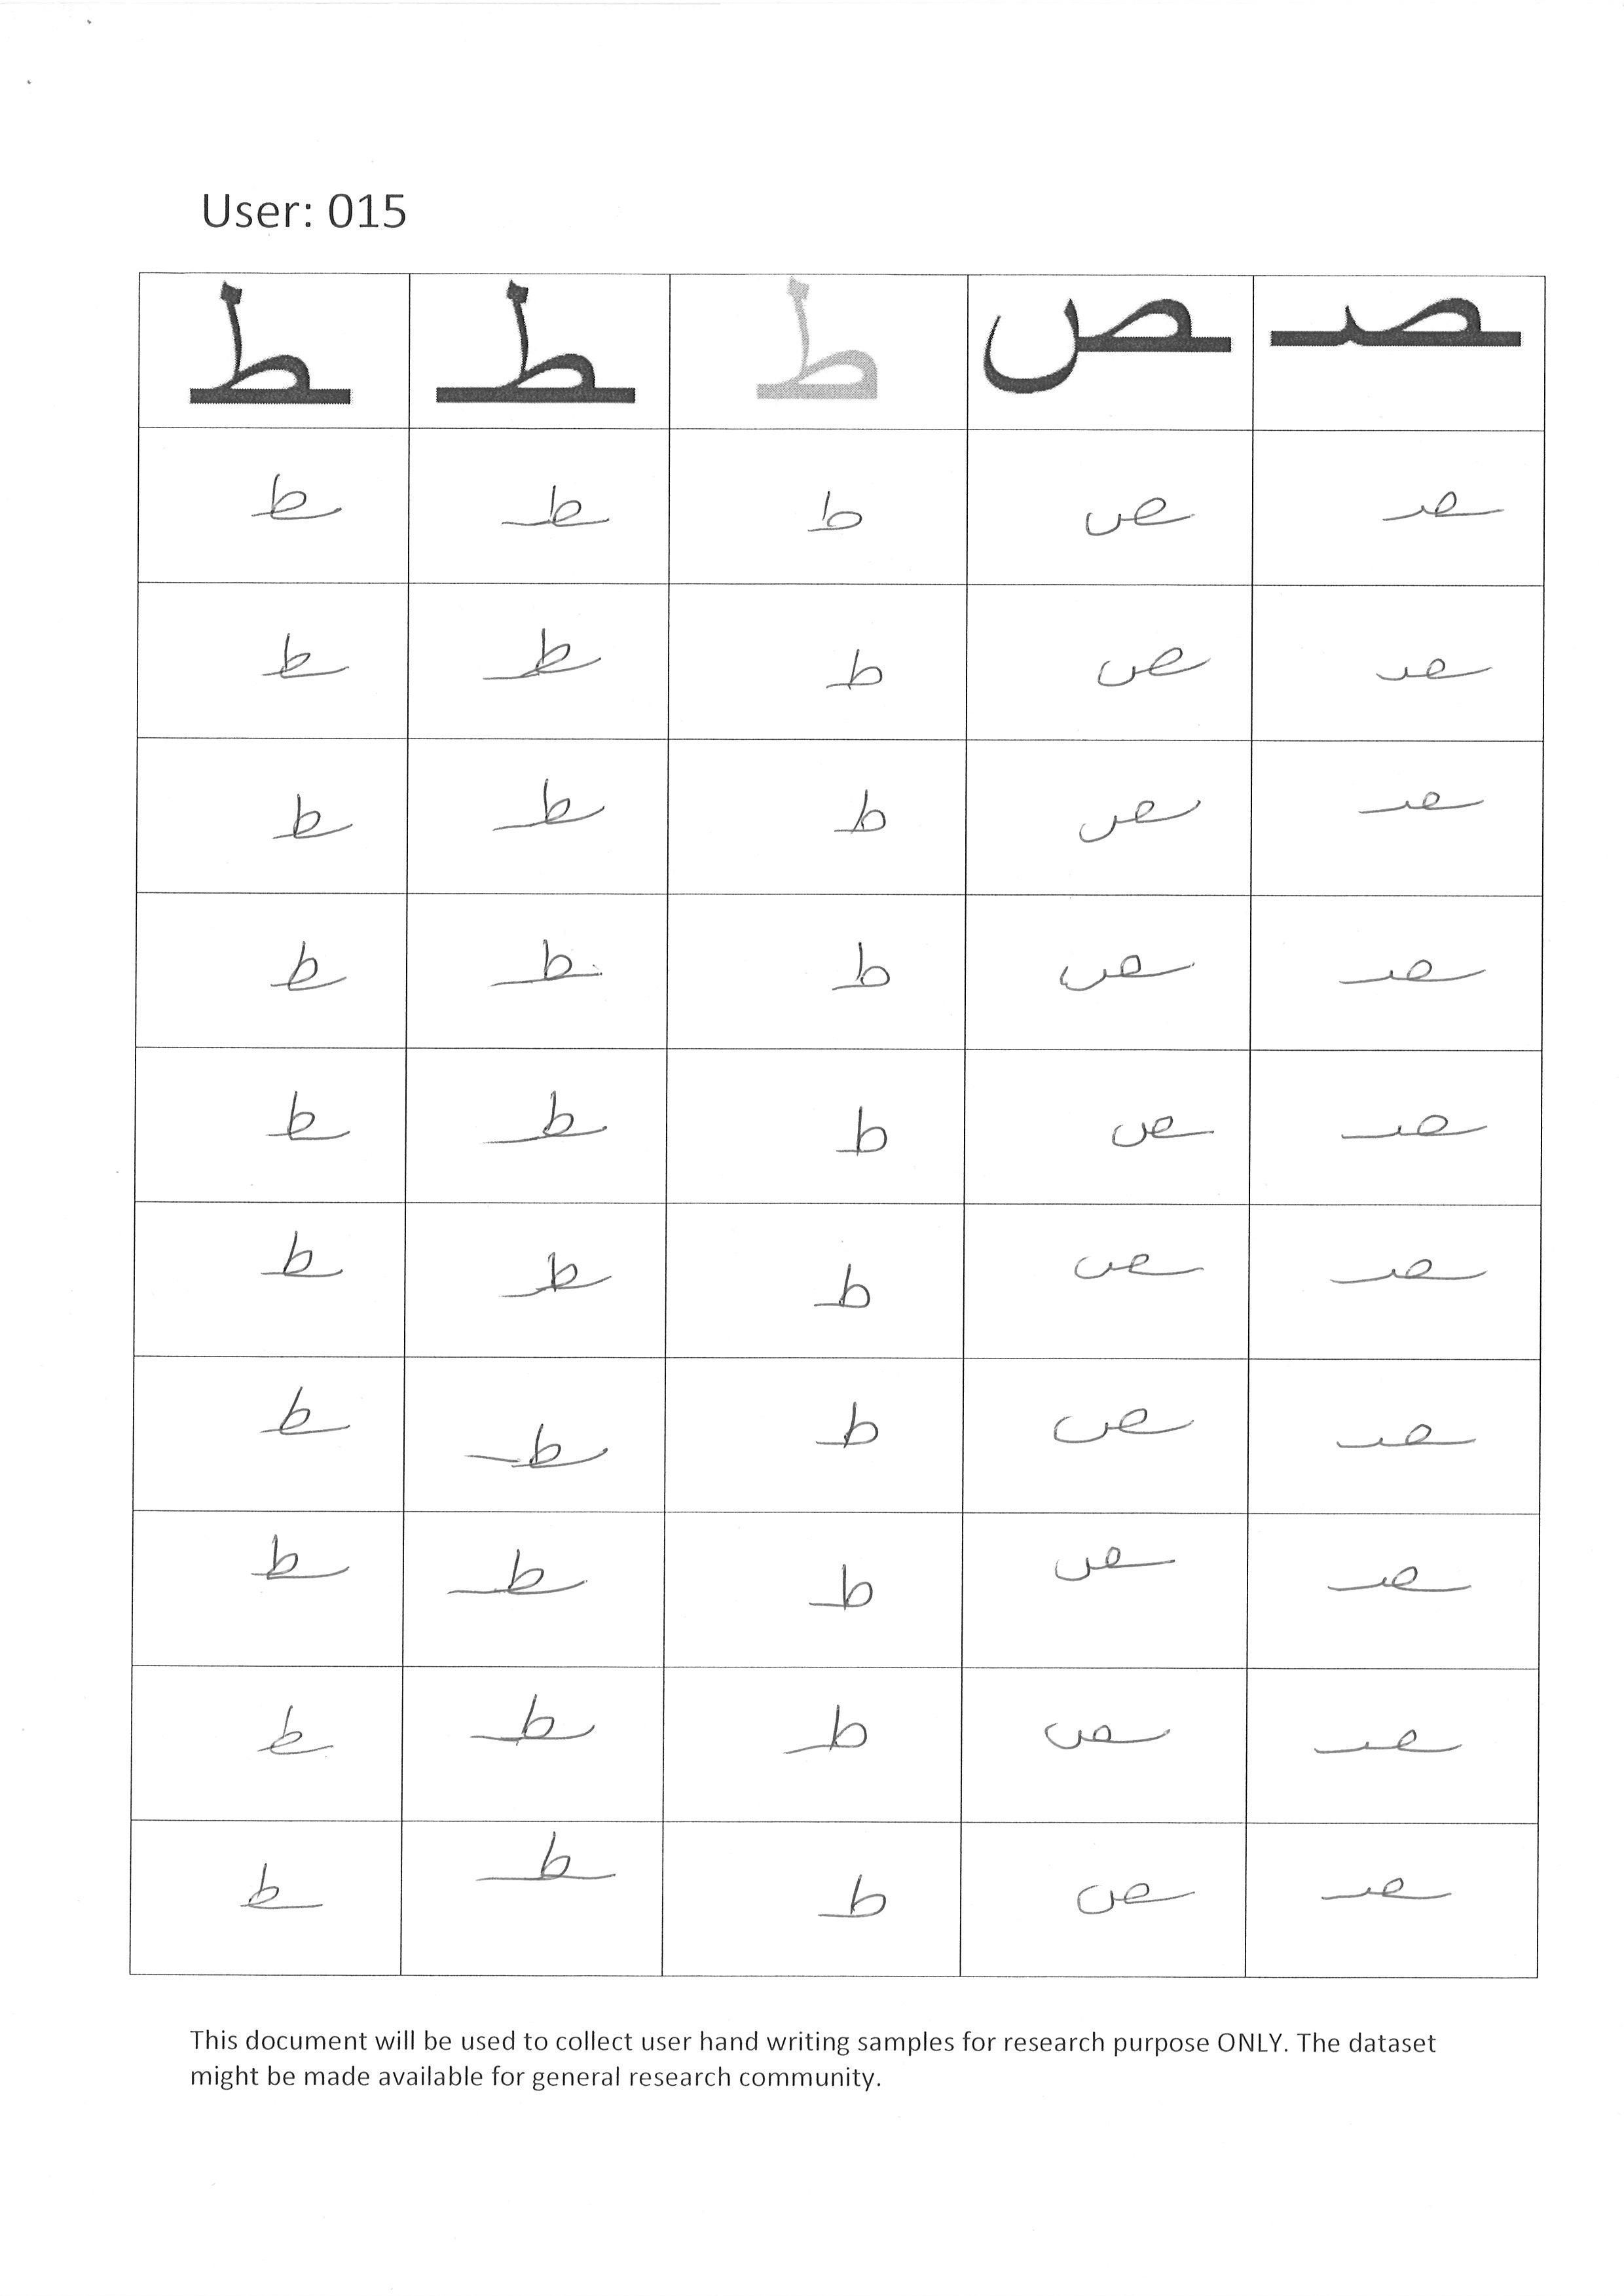 User: 015
ـصـ ـص ط ـطـ ـط
ـصـ ـص ط ـطـ ـط
ـصـ ـص ط ـطـ ـط
ـصـ ـص ط ـطـ ـط
ـصـ ـص ط ـطـ ـط
ـصـ ـص ط ـطـ ـط
ـصـ ـص ط ـطـ ـط
ـصـ ـص ط ـطـ ـط
ـصـ ـص ط ـطـ ـط
ـصـ ـص ط ـطـ ـط
ـصـ ـص ط ـطـ ـط
This document will be used to collect user hand writing samples for research purpose ONLY. The dataset
might be made available for general research community.